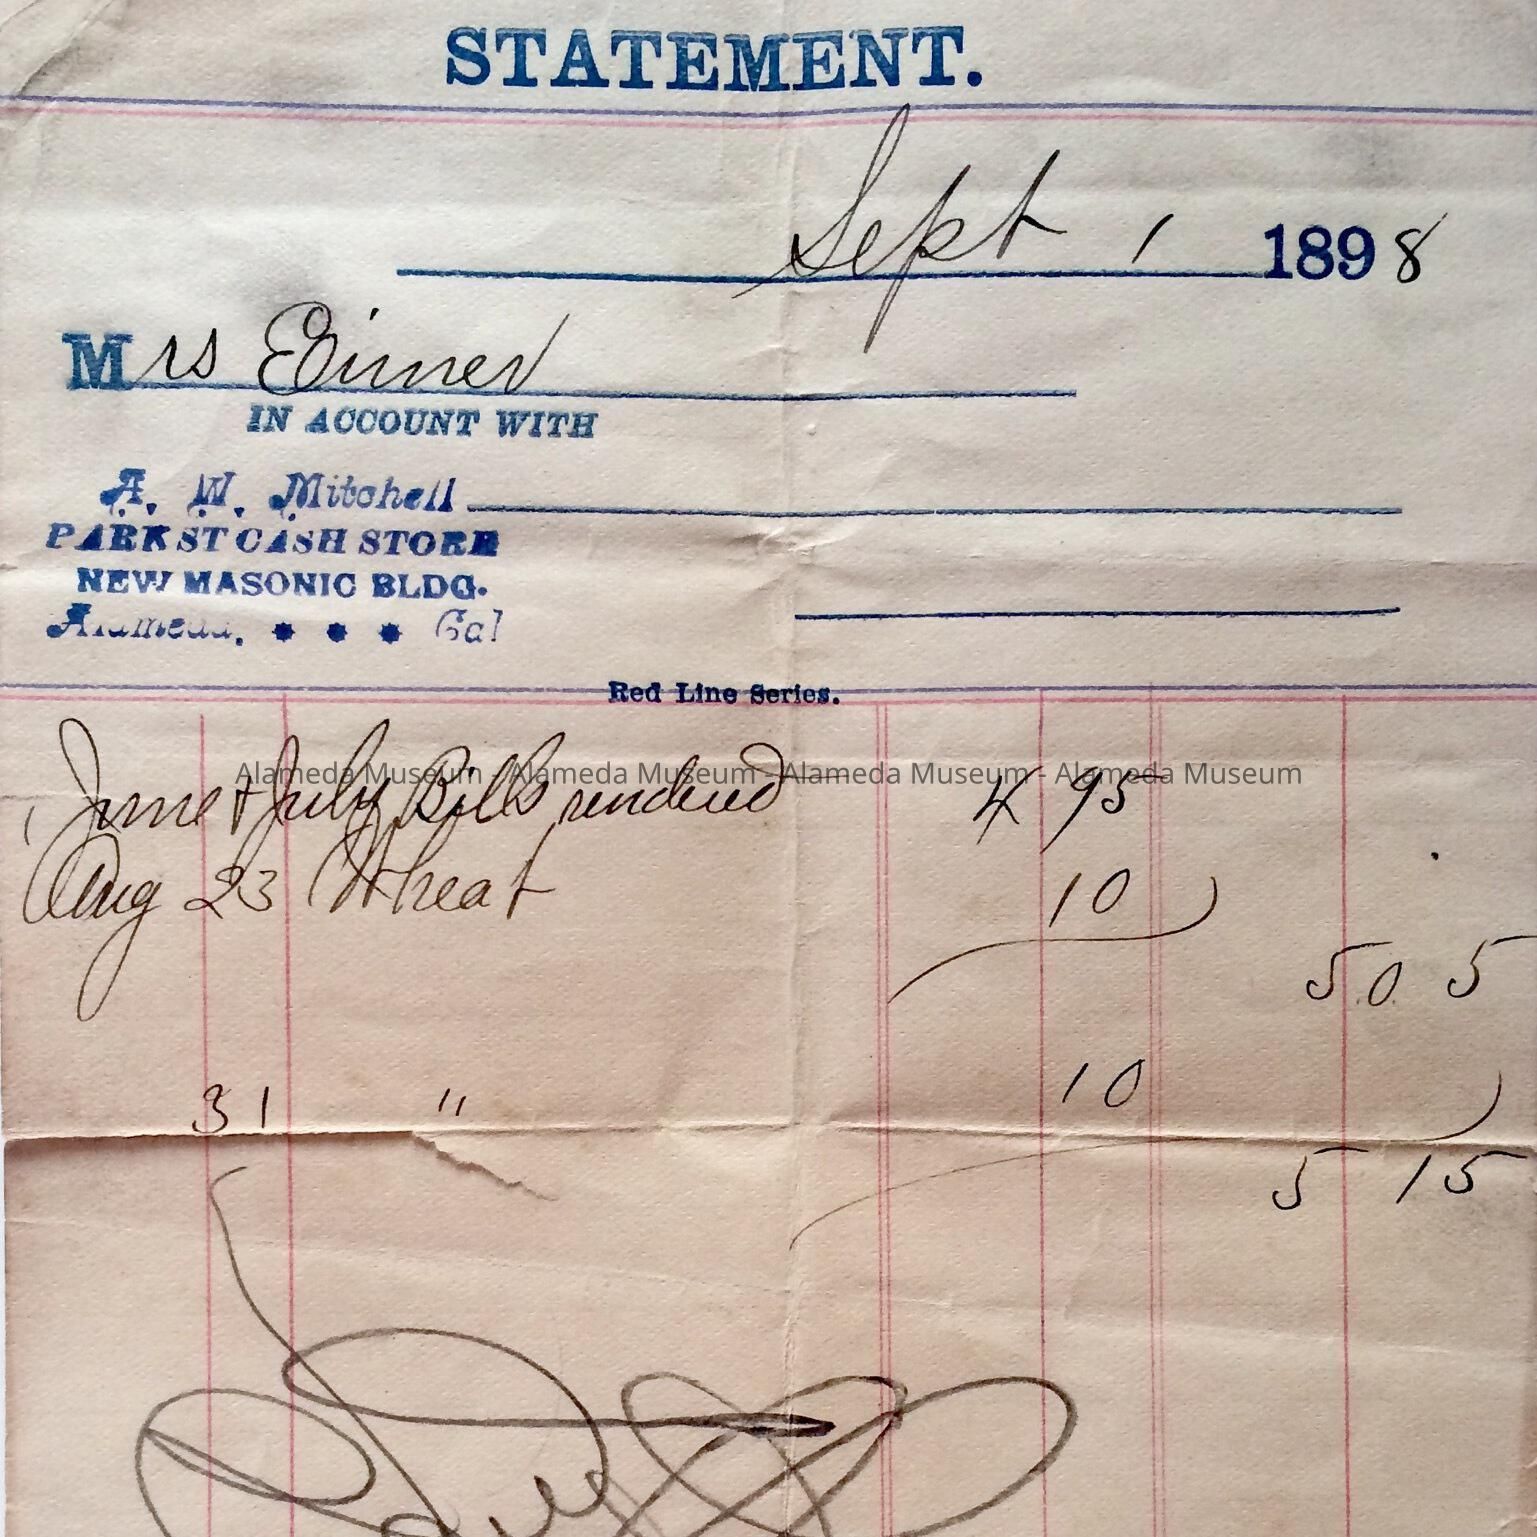 STATEMENT.
Sept 1 1898
Mrs Eimer
IN ACCOUNT WITH
A. W. Mitchell
PARK ST CASH STORE
NEW MASONIC BLDG.
Alameda, * * * Cal
Red Line Series.
Alameda Museum - Alameda Museum - Alameda Museum - Alameda Museum
June & July Bills rendered 4 95
Aug 23 Wheat 10
5.0. 5
31 " 10
5 15